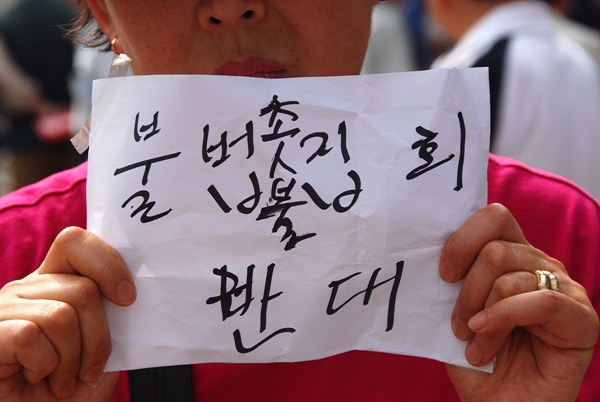 불법 촛불 집회
반대